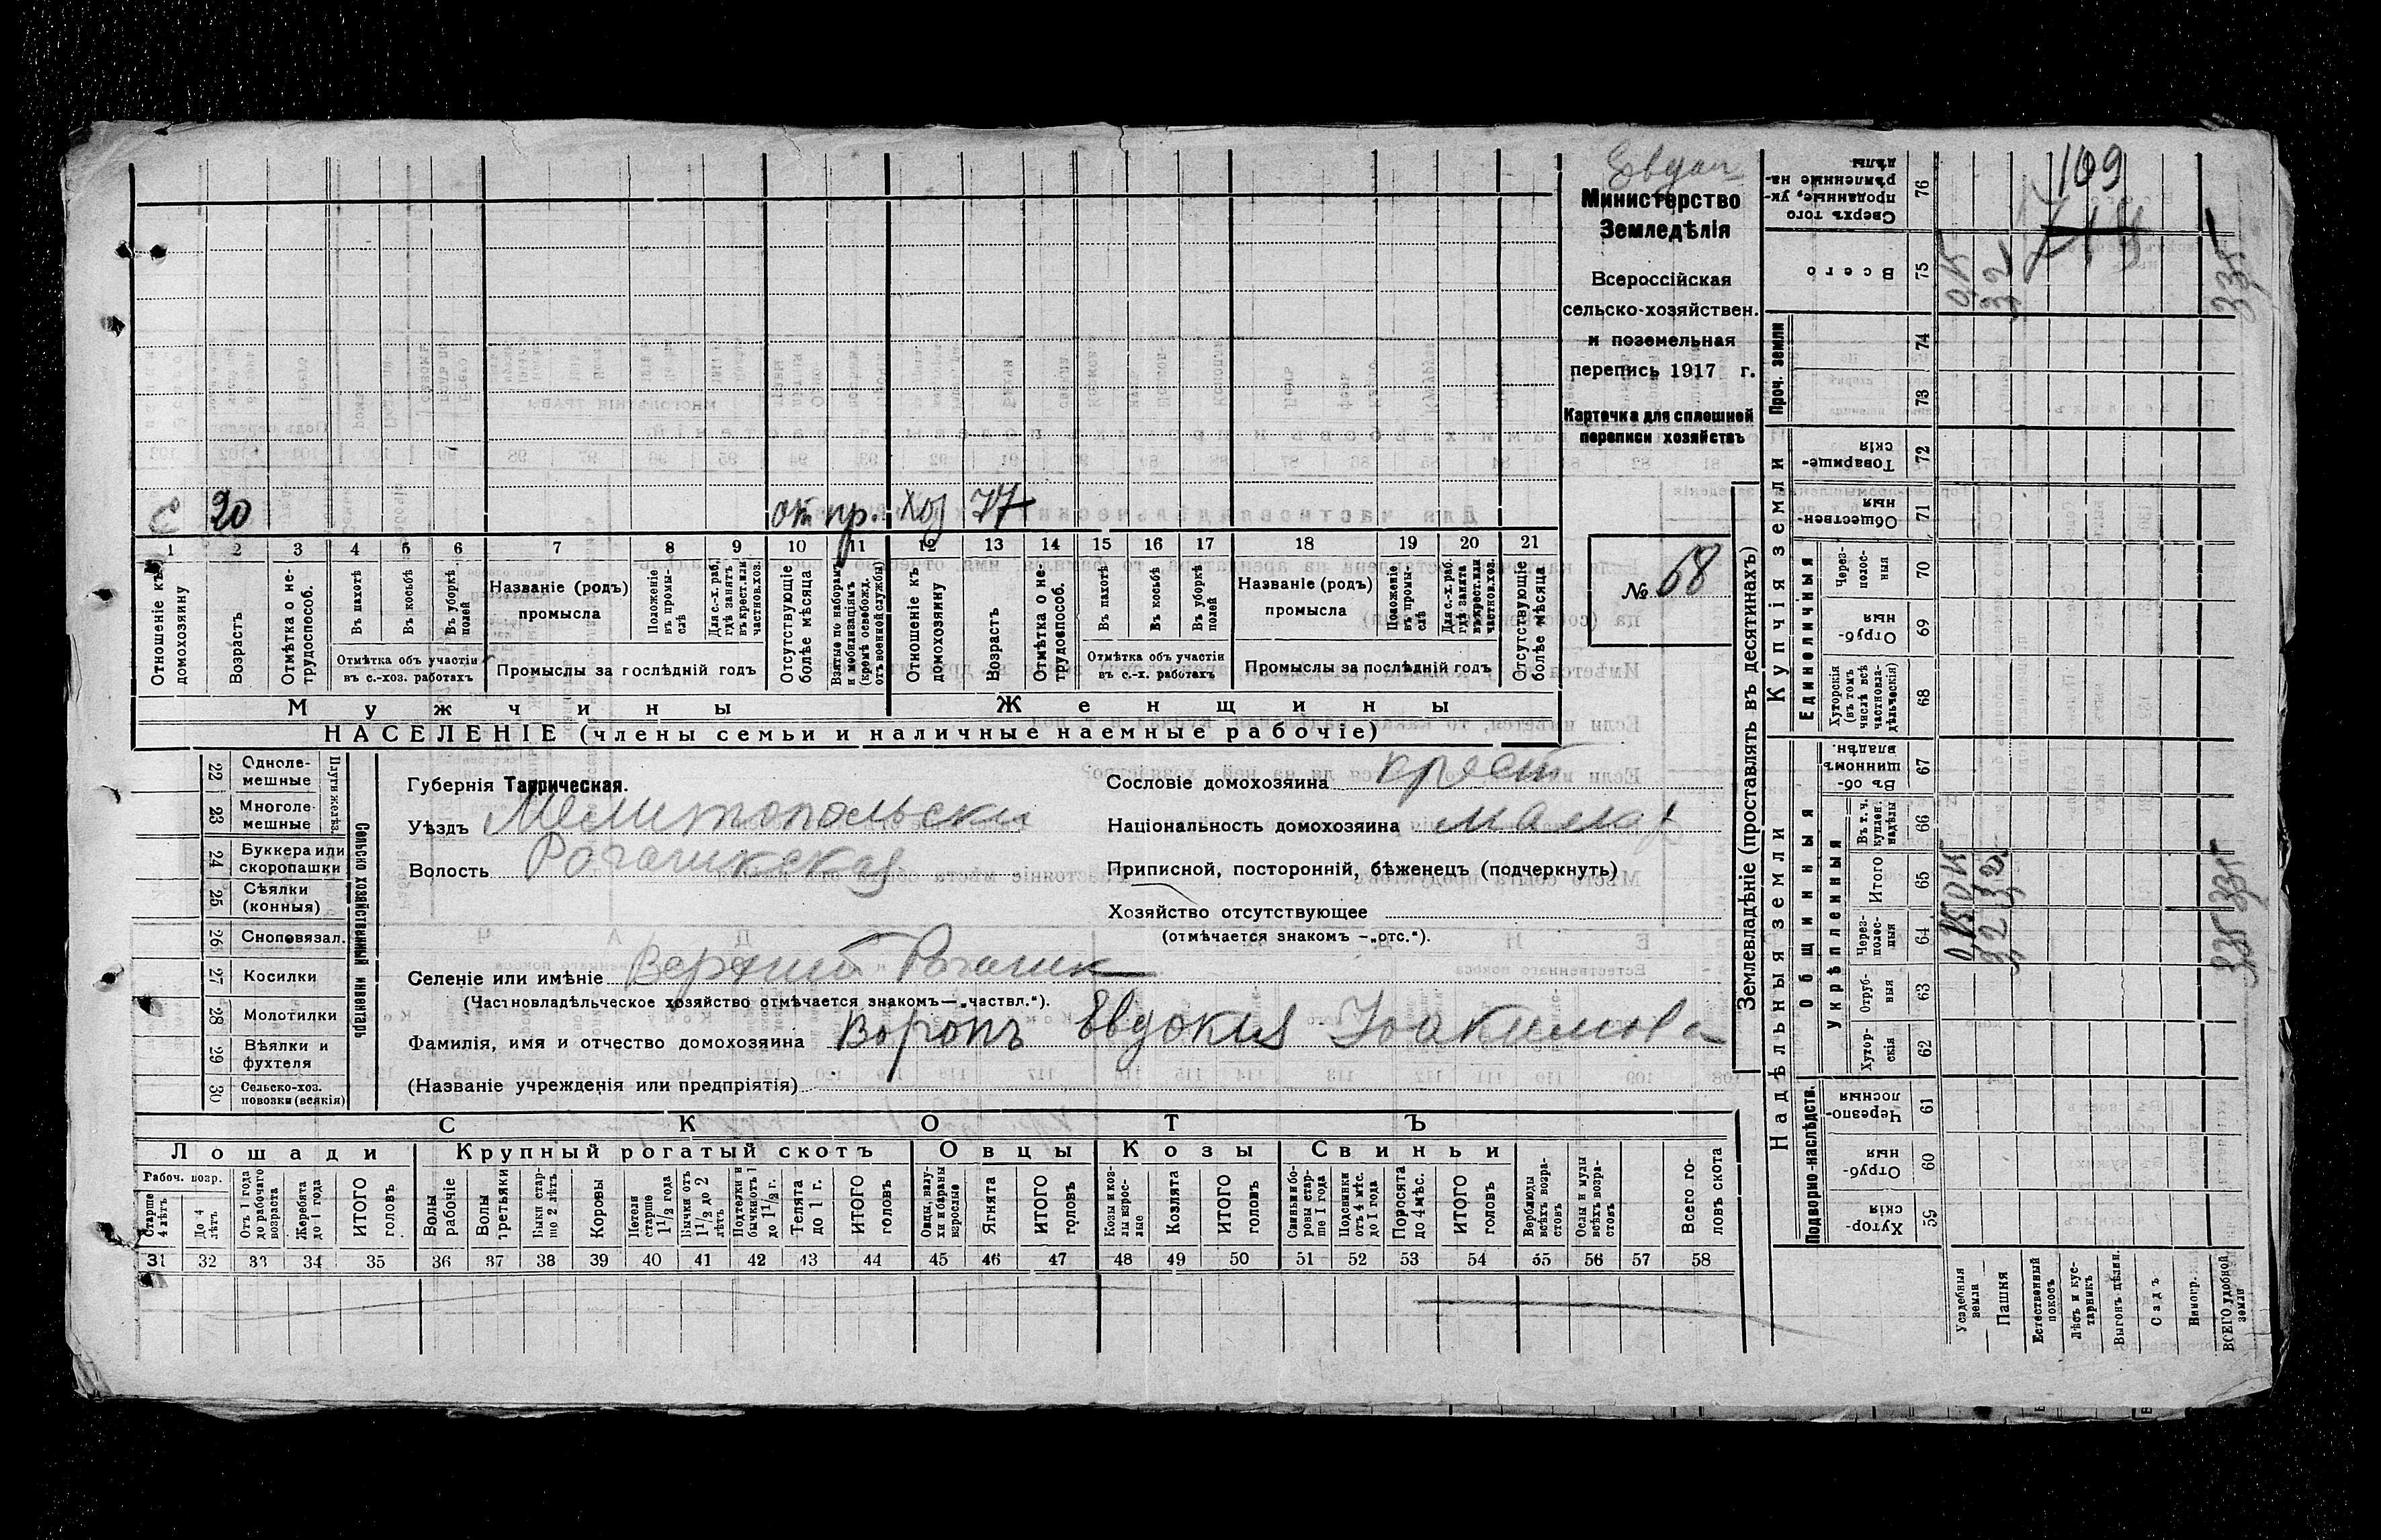 Министерство
Земледѣлія
Всероссійская
сельско-хозяйствен.
и поземельная
перепись 1917 г.
Карточка для сплошной
переписи хозяйствъ
№ 68
с 20 от. пр. хоз 77
1 2 3 4 5 6 7 8 9 10 11 12 13 14 15 16 17 18 19 20 21
Отношеніе къ домохозяину
Возрастъ
Отмѣтка о не-трудоспособ.
Въ пахотѣ
Въ косьбѣ
Въ уборкѣ полей
Отмѣтка объ участіи
въ с.-хоз. работахъ
Названіе (родъ)
промысла
Положеніе въ промы-слѣ
Для с.-х. раб. гдѣ занятъ въ крест. или частнов. хоз.
Промыслы за послѣдній годъ
Отсутствующіе болѣе мѣсяца
Взятые по наборамъ и мобилизаціямъ (кромѣ освобожд. отъ военной службы)
Отношеніе къ домохозяину
Возрастъ
Отмѣтка о не-трудоспособ.
Въ пахотѣ
Въ косьбѣ
Въ уборкѣ полей
Отмѣтка объ участіи
въ с.-х. работахъ
Названіе (родъ)
промысла
Положеніе въ промы-слѣ
Для с.-х. раб. гдѣ занята въ крест. или частнов. хоз.
Промыслы за послѣдній годъ
Отсутствующіе болѣе мѣсяца
Мужчины Женщины
НАСЕЛЕНІЕ (члены семьи и наличные наемные рабочіе)
22 Одноле-мешные
23 Многоле-мешные
Плуги желѣз.
24 Буккера или скоропашки
25 Сѣялки (конныя)
26 Сноповязал.
27 Косилки
28 Молотилки
29 Вѣялки и фухтеля
30 Сельско-хоз. повозки (всякія)
Сельско хозяйственный инвентарь
Губернія Таврическая.
Уѣздъ Мелитопольски
Волость Рогачикская
Сословіе домохозяина крест
Національность домохозяина малор
Приписной, посторонній, бѣженецъ (подчеркнуть)
Хозяйство отсутствующее
(отмѣчается знакомъ —„отс.“).
Селеніе или имѣніе Верхній Рогачик
(Частновладѣльческое хозяйство отмѣчается знакомъ—„частвл.“).
Фамилія, имя и отчество домохозяина Воропъ Евдокия Иоакимова
(Названіе учрежденія или предпріятія)
СКОТЪ
Лошади Крупный рогатый скотъ Овцы Козы Свиньи
Рабоч. возр.
Старше 4 лѣтъ
До 4 лѣтъ
Отъ 1 года до рабочаго возраста
Жеребята до 1 года
ИТОГО головъ
Волы рабочіе
Волы третьяки
Быки стар-ше 2 лѣтъ
Коровы
Нетели старше 1 1/2 года
Бычки отъ 1 1/2 до 2 лѣтъ
Подтелки и бычки отъ 1 до 1 1/2 г.
Телята до 1 г.
ИТОГО головъ
Овцы, валу-хи и бараны взрослые
Ягнята
ИТОГО головъ
Козы и коз-лы взрос-лые
Козлята
ИТОГО головъ
Свиньи и бо-ровы стар-ше 1 года
Подсвинки отъ 4 мѣс. до 1 года
Поросята до 4 мѣс.
ИТОГО головъ
Верблюды всѣхъ возра-стовъ
Ослы и мулы всѣхъ возра-стовъ
Всего го-ловъ скота
31 32 33 34 35 36 37 38 39 40 41 42 43 44 45 46 47 48 49 50 51 52 53 54 55 56 57 58
Землевладѣніе (проставлять въ десятинахъ)
Надѣльныя земли Купчія земли Проч. земли
Подворно-наслѣдств.
Общинныя
Укрѣпленныя
Единоличныя
Хутор-скія 59
Отруб-ныя 60
Черезпо-лосныя 61
Хутор-скія 62
Отруб-ныя 63
Через-полос-ныя 64
Итого 65
Въ т. ч. куплен. надѣлы 66
Въ об-щинномъ владѣн. 67
Хуторскія (въ томъ числѣ всѣ частновла-дѣльческія) 68
Отруб-ныя 69
Через-полос-ныя 70
Обществен-ныя 71
Товарище-скія 72
73
74
Всего 75
Сверхъ того проданные, ук-рѣпленные на-дѣлы 76
109
Усадебная земля
Пашня
Естественный покосъ
Лѣсъ и кус-тарникъ
Выгонъ цѣлин.
Садъ
Виногр.
ВСЕГО удобной земли
335
335
335